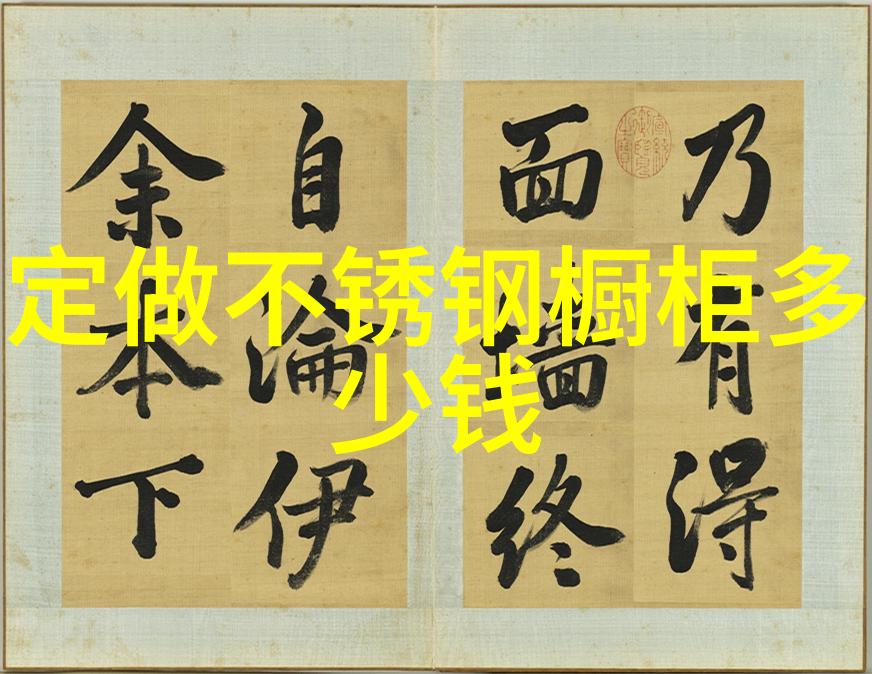 定做不锈钢橱柜多
少钱
乃有得
面墻終
自淪伊
余本下